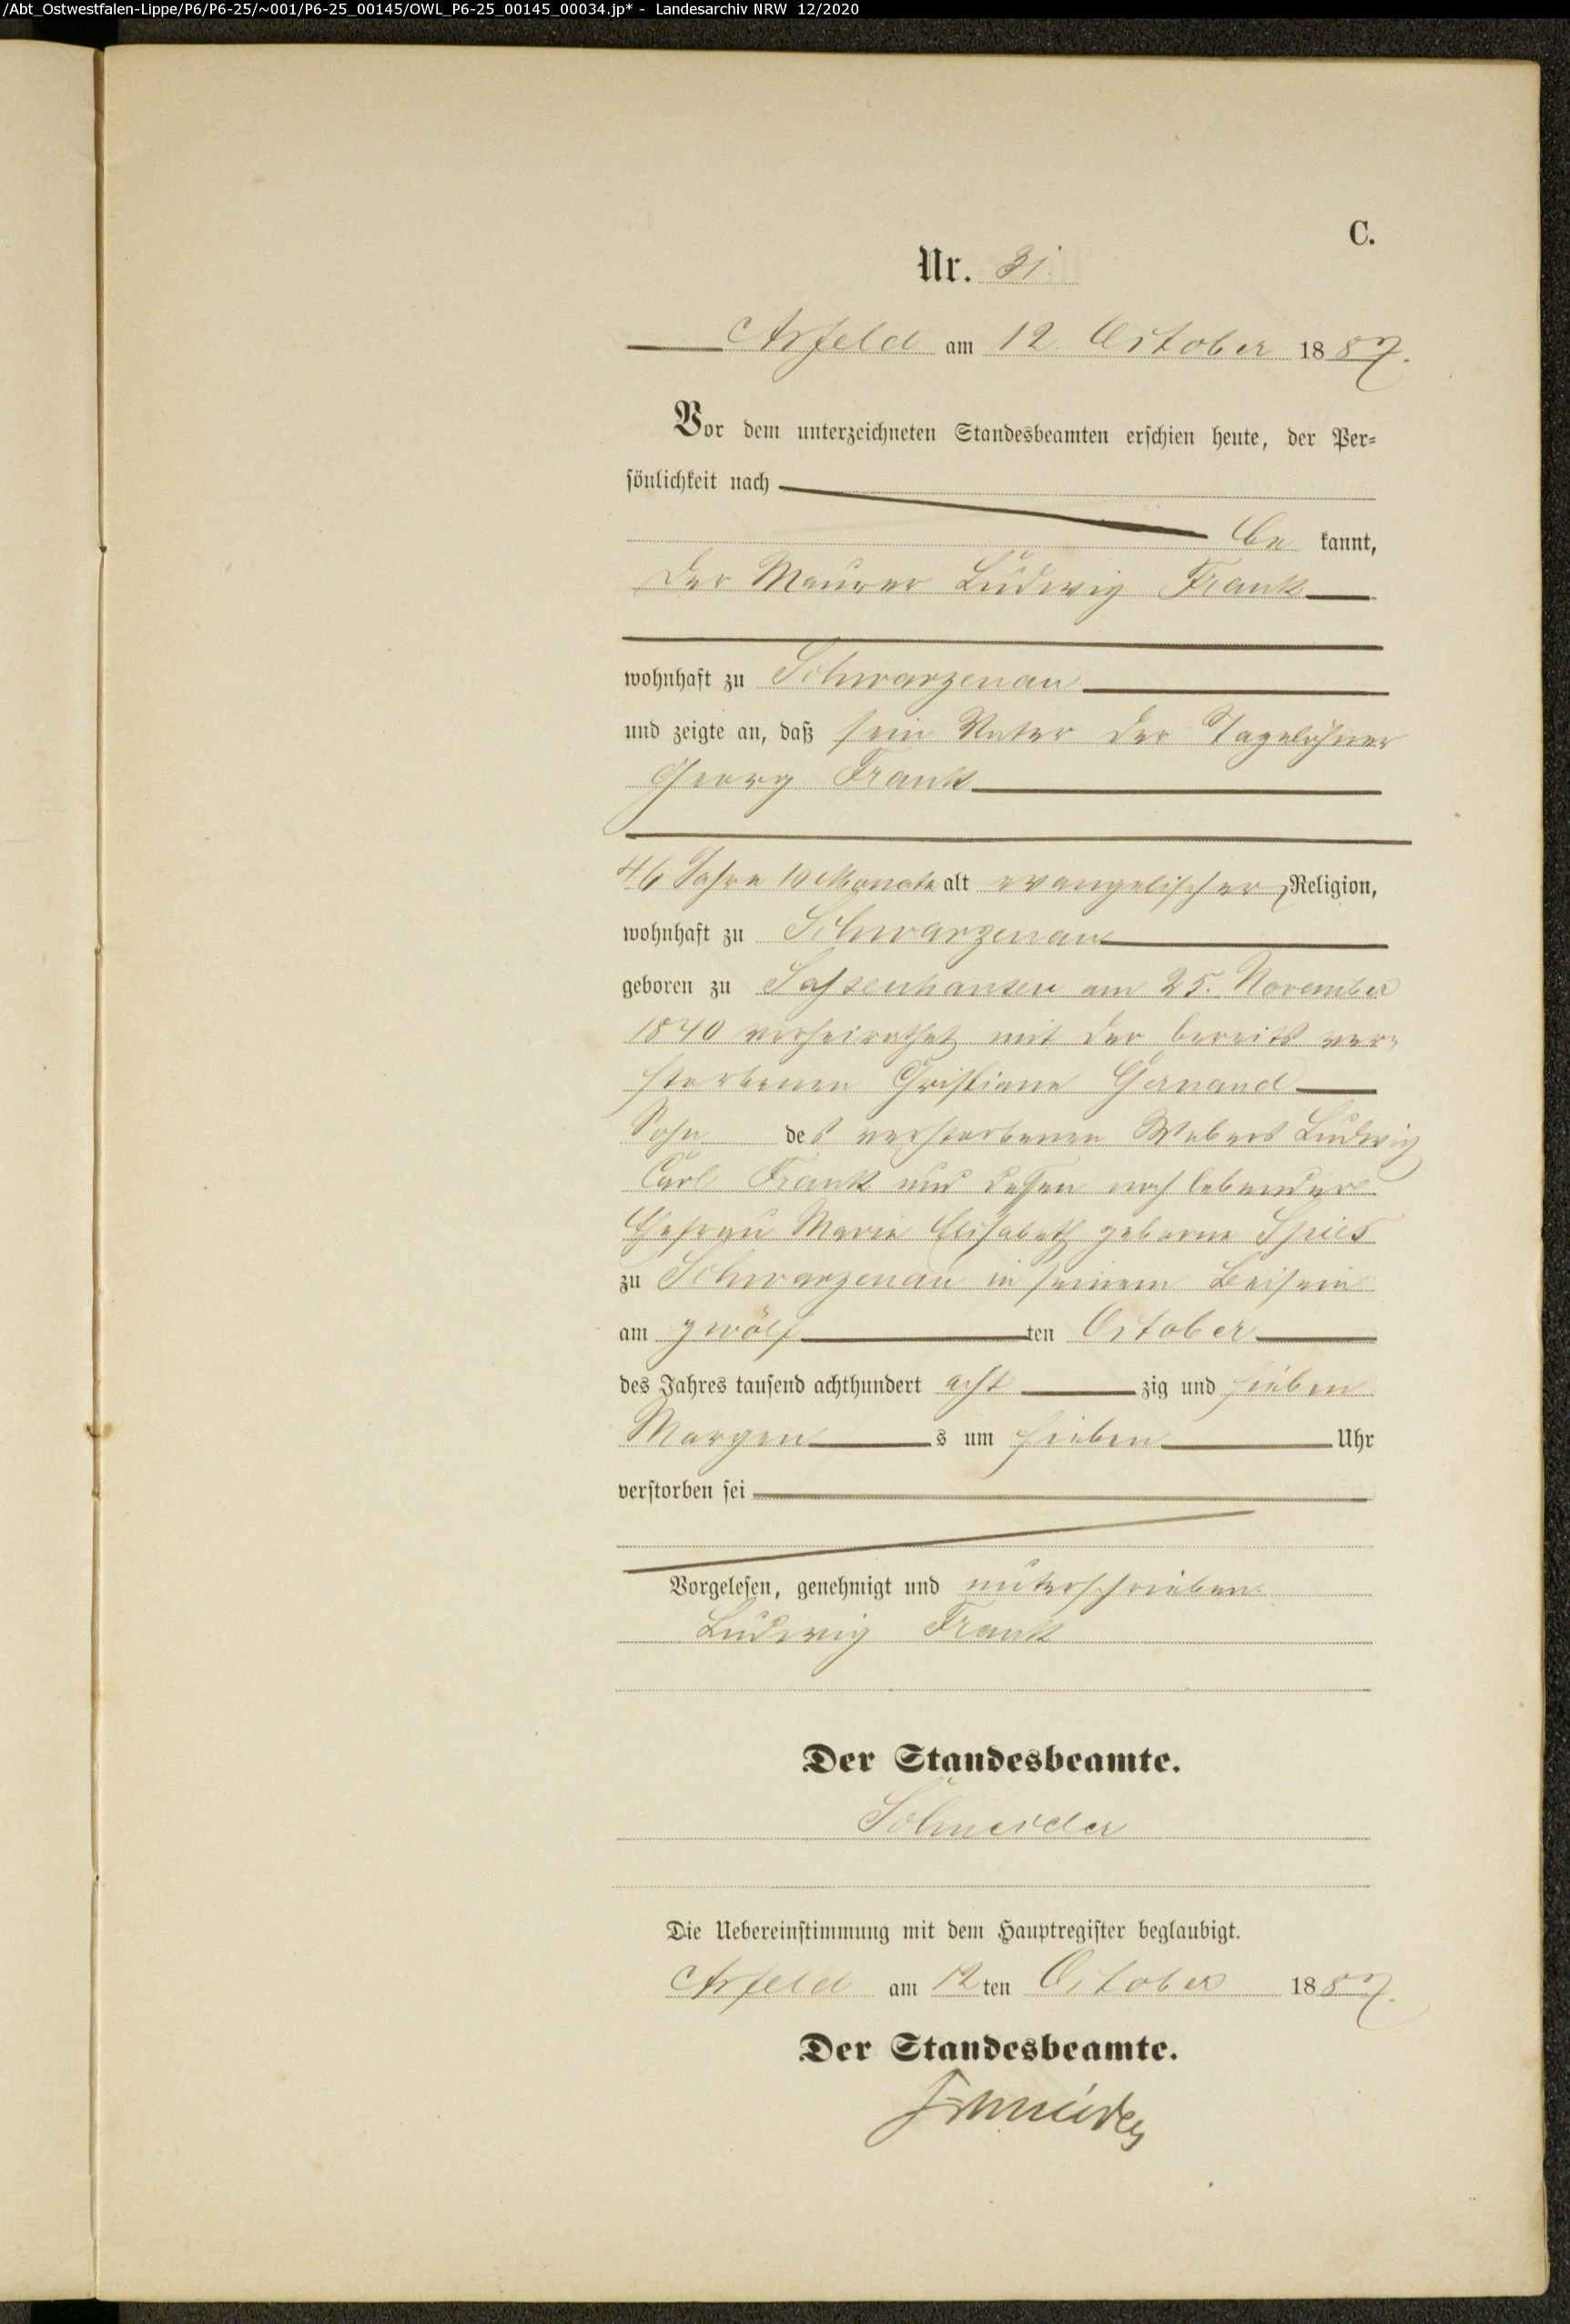 /Abt_Ostwestfalen-Lippe/P6/P6-25/~001/P6-25_00145/OWL_P6-25_00145_00034.jp* - Landesarchiv NRW 12/2020
C.
Nr. 31
Arfeld am 12. October 1887.
Vor dem unterzeichneten Standesbeamten erschien heute, der Per-
sönlichkeit nach
be kannt,
der Maurer Ludwig Frank
wohnhaft zu Schwarzenau
und zeigte an, daß sein Vater der Tagelöhner
Georg Frank
46 Jahre 10 Monate alt evangelischer Religion,
wohnhaft zu Schwarzenau
geboren zu Sassenhausen am 25. November
1840 verheirathet mit der bereits ver-
storbenen Christiane Gernand
Sohn des verstorbenen Webers Ludwig
Carl Frank und dessen noch lebender
Ehefrau Marie Elisabeth geborne Spies
zu Schwarzenau in seinem Beisein
am zwölf ten October
des Jahres tausend achthundert acht zig und sieben
Morgen s um sieben Uhr
verstorben sei
Vorgelesen, genehmigt und unterschrieben.
Ludwig Frank
Der Standesbeamte.
Schneider
Die Uebereinstimmung mit dem Hauptregister beglaubigt.
Arfeld am 12 ten October 1887.
Der Standesbeamte.
Schneider